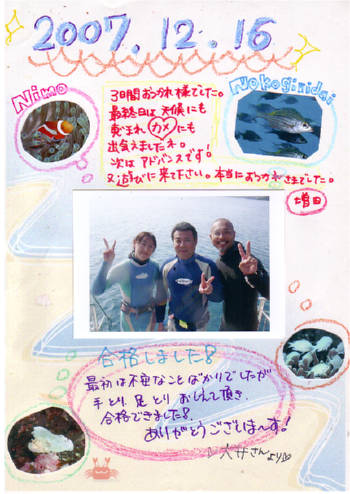 2007.12.16
Nimo
Nokogiridai
3日間おつかれ様でした。
最終日は天候にも
恵まれ、カメにも
出会えましたネ。
次はアドバンスです!
又遊びに来て下さい。本当におつかれさまでした。
増田
合格しました!
最初は不安なことばかりでしたが
手とり足とりおしえて頂き、
合格できました!
ありがとうございまーす!
大井さんより